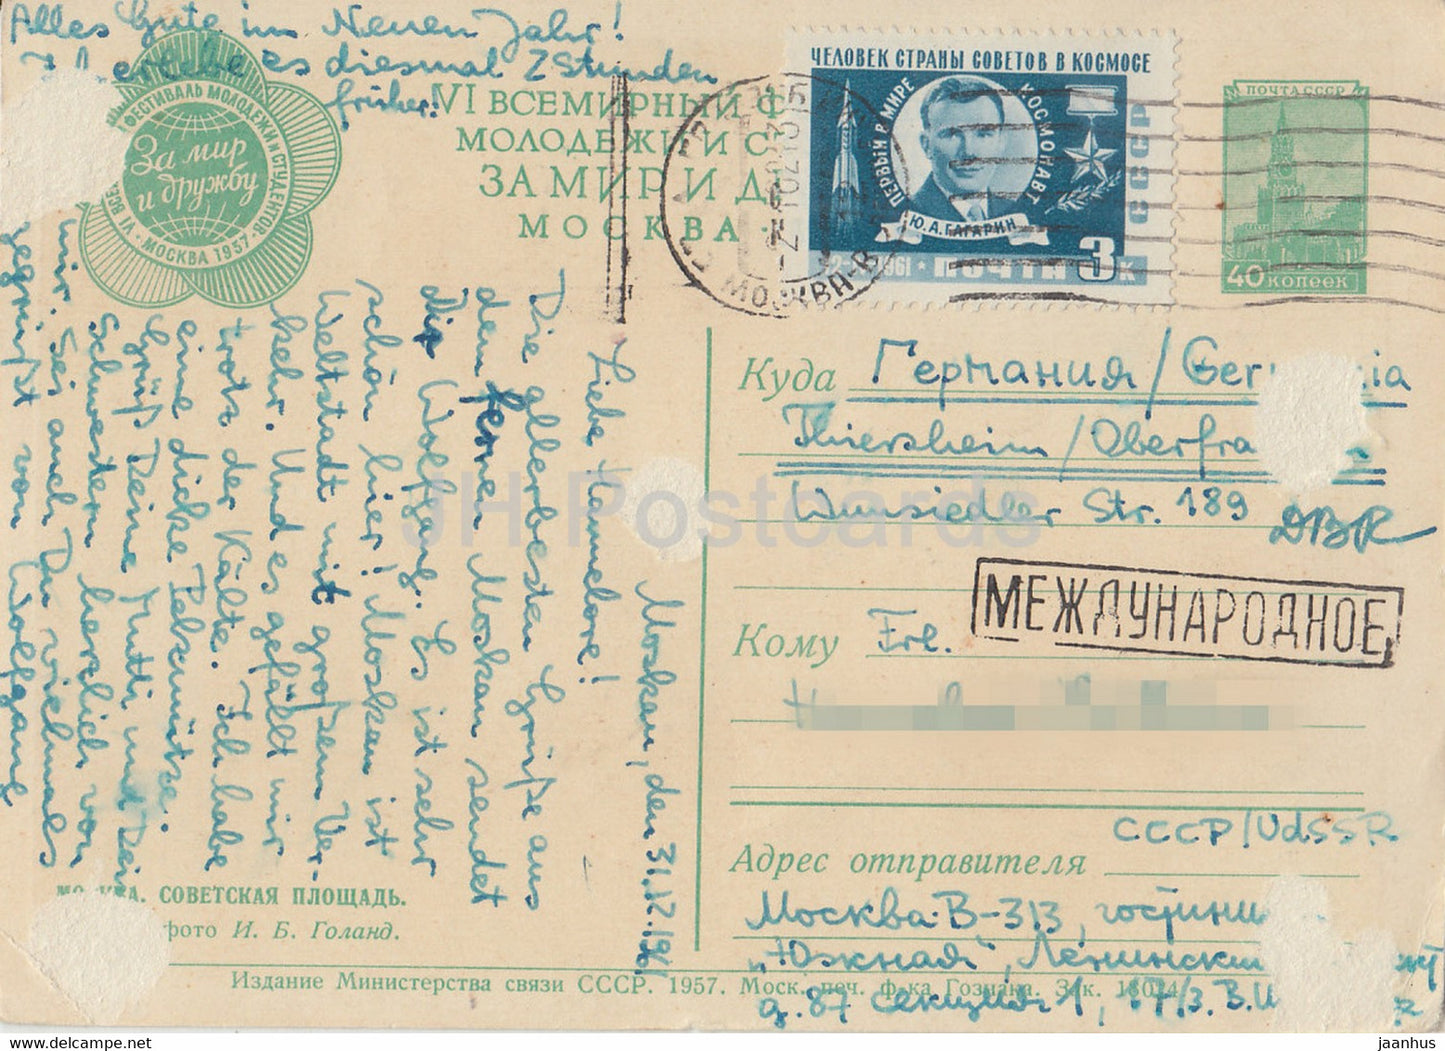 Alles Gute im Neuen Jahr!
es diesmal 2 Stunden
früher!
VI ВСЕМИРНЫЙ Ф
МОЛОДЕЖИ И С
ЗА МИР И Д
МОСКВА
ФЕСТИВАЛЬ МОЛОДЕЖИ И СТУДЕНТОВ
За мир
и дружбу
VI ВСЕ
МОСКВА 1957
ЧЕЛОВЕК СТРАНЫ СОВЕТОВ В КОСМОСЕ
ПЕРВЫЙ В МИРЕ
КОСМОНАВТ
Ю. А. ГАГАРИН
СССР
1961 ПОЧТА 3 к
ПОЧТА СССР
40 копеек
МОСКВА-В
Moskau, den 31.12.1961
Liebe Hannelore!
Die allerbesten Grüße aus
dem fernen Moskau sendet
Dir Wolfgang. Es ist sehr
schön hier! Moskau ist
Weltstadt mit großem Ver-
kehr. Und es gefällt mir
trotz der Kälte. Ich habe
eine dicke Pelzmütze.
Grüß Deine Mutti und Dei
Schwestern herzlich von
mir. Sei auch Du vielmals
gegrüßt von Wolfgang
Куда Германия/Ger nia
Thiersheim/Oberfra
Wunsiedler Str. 189
DBR
МЕЖДУНАРОДНОЕ
Кому Frl.
СССР/UdSSR
Адрес отправителя
Москва-В-313, гостини
"Южная", Ленинский
д. 87 секция 1, 17/3. В.
МОСКВА. СОВЕТСКАЯ ПЛОЩАДЬ.
фото И. Б. Голанд.
Издание Министерства связи СССР. 1957. Моск. печ. ф-ка Гознака. Зак. 18024
JH Postcards
jaanhus
www.delcampe.net